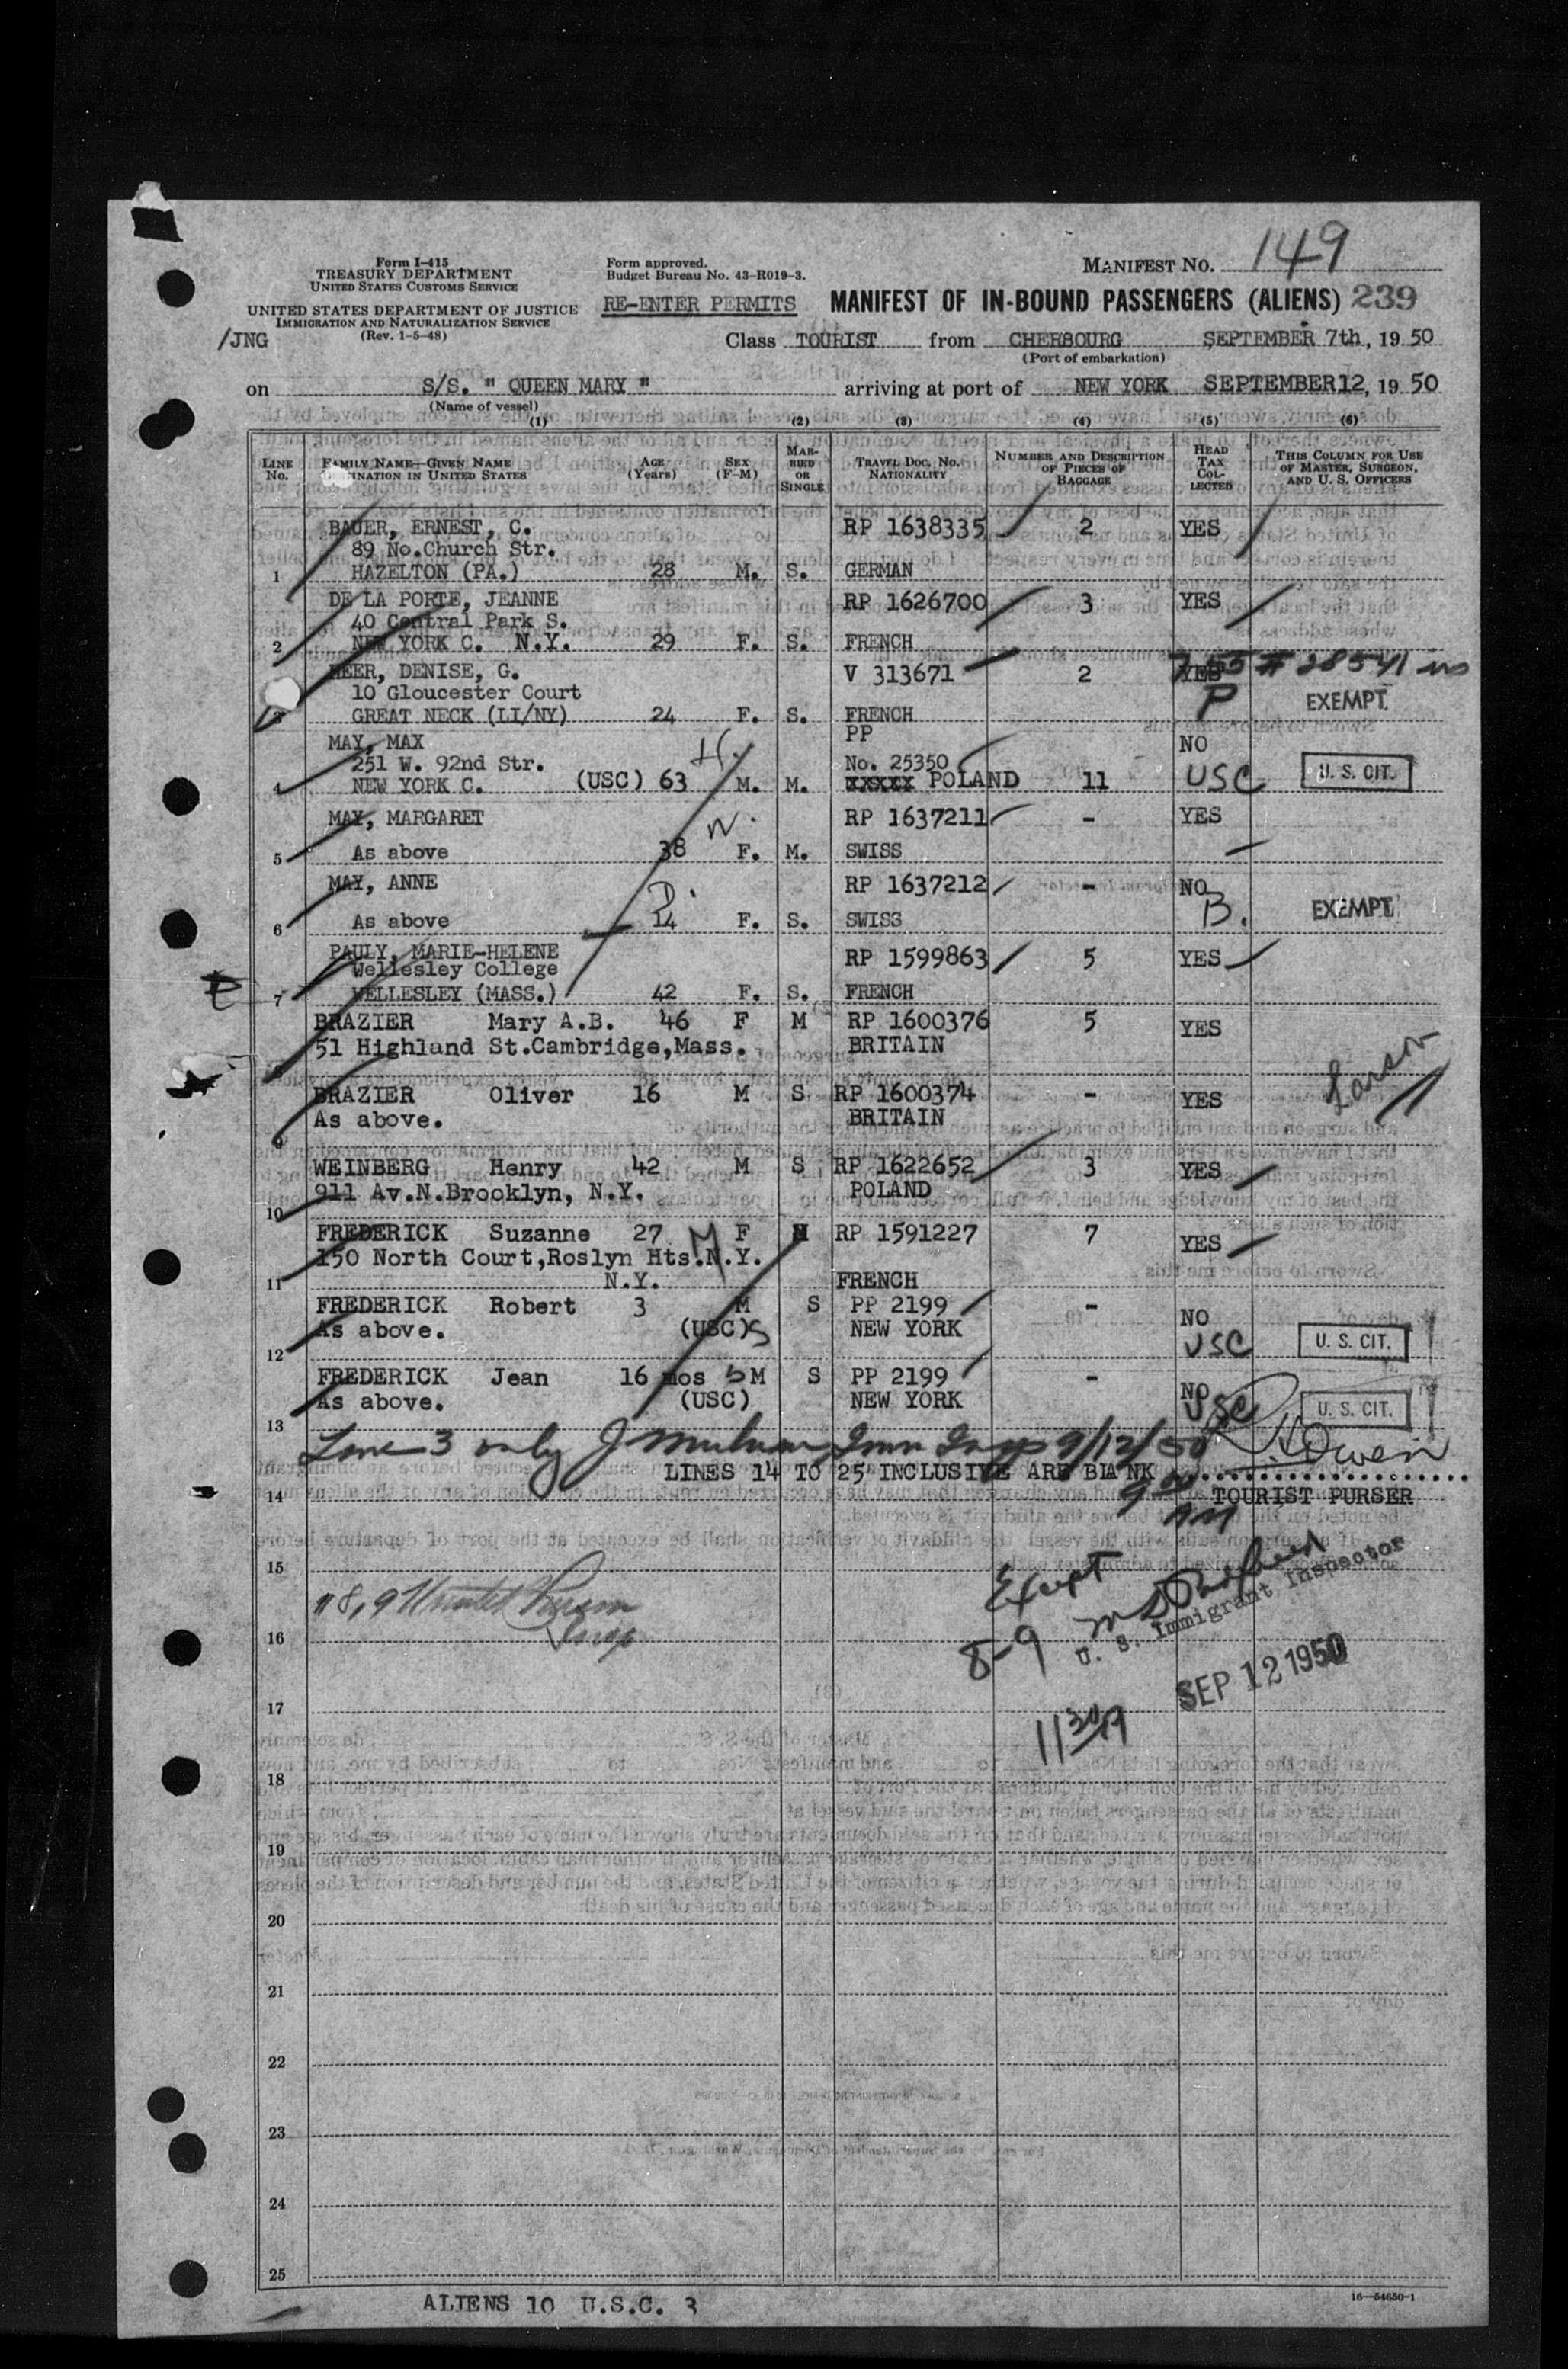 Form I-415
TREASURY DEPARTMENT
UNITED STATES CUSTOMS SERVICE
UNITED STATES DEPARTMENT OF JUSTICE
IMMIGRATION AND NATURALIZATION SERVICE
(Rev. 1-5-48)
/JNG
Form approved.
Budget Bureau No. 43-R019-3.
RE-ENTER PERMITS
MANIFEST NO. 149
MANIFEST OF IN-BOUND PASSENGERS (ALIENS) 239
Class TOURIST from CHERBOURG SEPTEMBER 7th, 19 50
(Port of embarkation)
on S/S. " QUEEN MARY " arriving at port of NEW YORK SEPTEMBER 12, 19 50
(Name of vessel)
(1) (2) (3) (4) (5) (6)
LINE No. FAMILY NAME—GIVEN NAME DESTINATION IN UNITED STATES AGE (Years) SEX (F-M) MARRIED OR SINGLE TRAVEL DOC. NO. NATIONALITY NUMBER AND DESCRIPTION OF PIECES OF BAGGAGE HEAD TAX COLLECTED THIS COLUMN FOR USE OF MASTER, SURGEON, AND U. S. OFFICERS
BAUER, ERNEST, C. RP 1638335 2 YES
89 No.Church Str.
1 HAZELTON (PA.) 28 M. S. GERMAN
DE LA PORTE, JEANNE RP 1626700 3 YES
40 Central Park S.
2 NEW YORK C. N.Y. 29 F. S. FRENCH
HEER, DENISE, G. V 313671 2 YES
10 Gloucester Court P EXEMPT
3 GREAT NECK (LI/NY) 24 F. S. FRENCH
MAY, MAX H. PP NO
251 W. 92nd Str. No. 25350
4 NEW YORK C. (USC) 63 M. M. XXXXX POLAND 11 USC U. S. CIT.
MAY, MARGARET W. RP 1637211 - YES
5 As above 38 F. M. SWISS
MAY, ANNE D. RP 1637212 - NO
6 As above 14 F. S. SWISS B. EXEMPT
PAULY, MARIE-HELENE RP 1599863 5 YES
Wellesley College
7 WELLESLEY (MASS.) 42 F. S. FRENCH
BRAZIER Mary A.B. 46 F M RP 1600376 5 YES
51 Highland St.Cambridge,Mass. BRITAIN
Larson
BRAZIER Oliver 16 M S RP 1600374 - YES
As above. BRITAIN
9
WEINBERG Henry 42 M S RP 1622652 3 YES
911 Av.N.Brooklyn, N.Y. POLAND
10
FREDERICK Suzanne 27 M F M RP 1591227 7 YES
150 North Court,Roslyn Hts.N.Y.
11 N.Y. FRENCH
FREDERICK Robert 3 M S PP 2199 - NO
As above. (USC) S NEW YORK USC U. S. CIT.
12
FREDERICK Jean 16 mos M S PP 2199 - NO
As above. (USC) NEW YORK USC U. S. CIT.
13
Line 3 only 9/12/50
LINES 14 TO 25 INCLUSIVE ARE BLANK
TOURIST PURSER
14
15
Except
8-9
U. S. Immigrant Inspector
16
SEP 12 1950
17
11 30 A
18
19
20
21
22
23
24
25
ALIENS 10 U.S.C. 3
16—54650-1